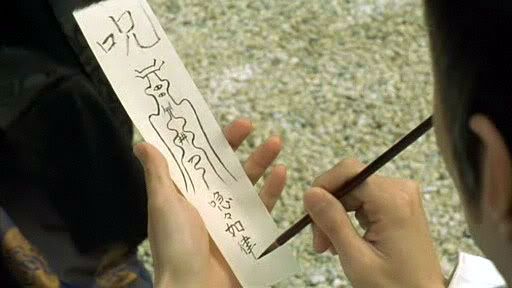 呪
喼々如律